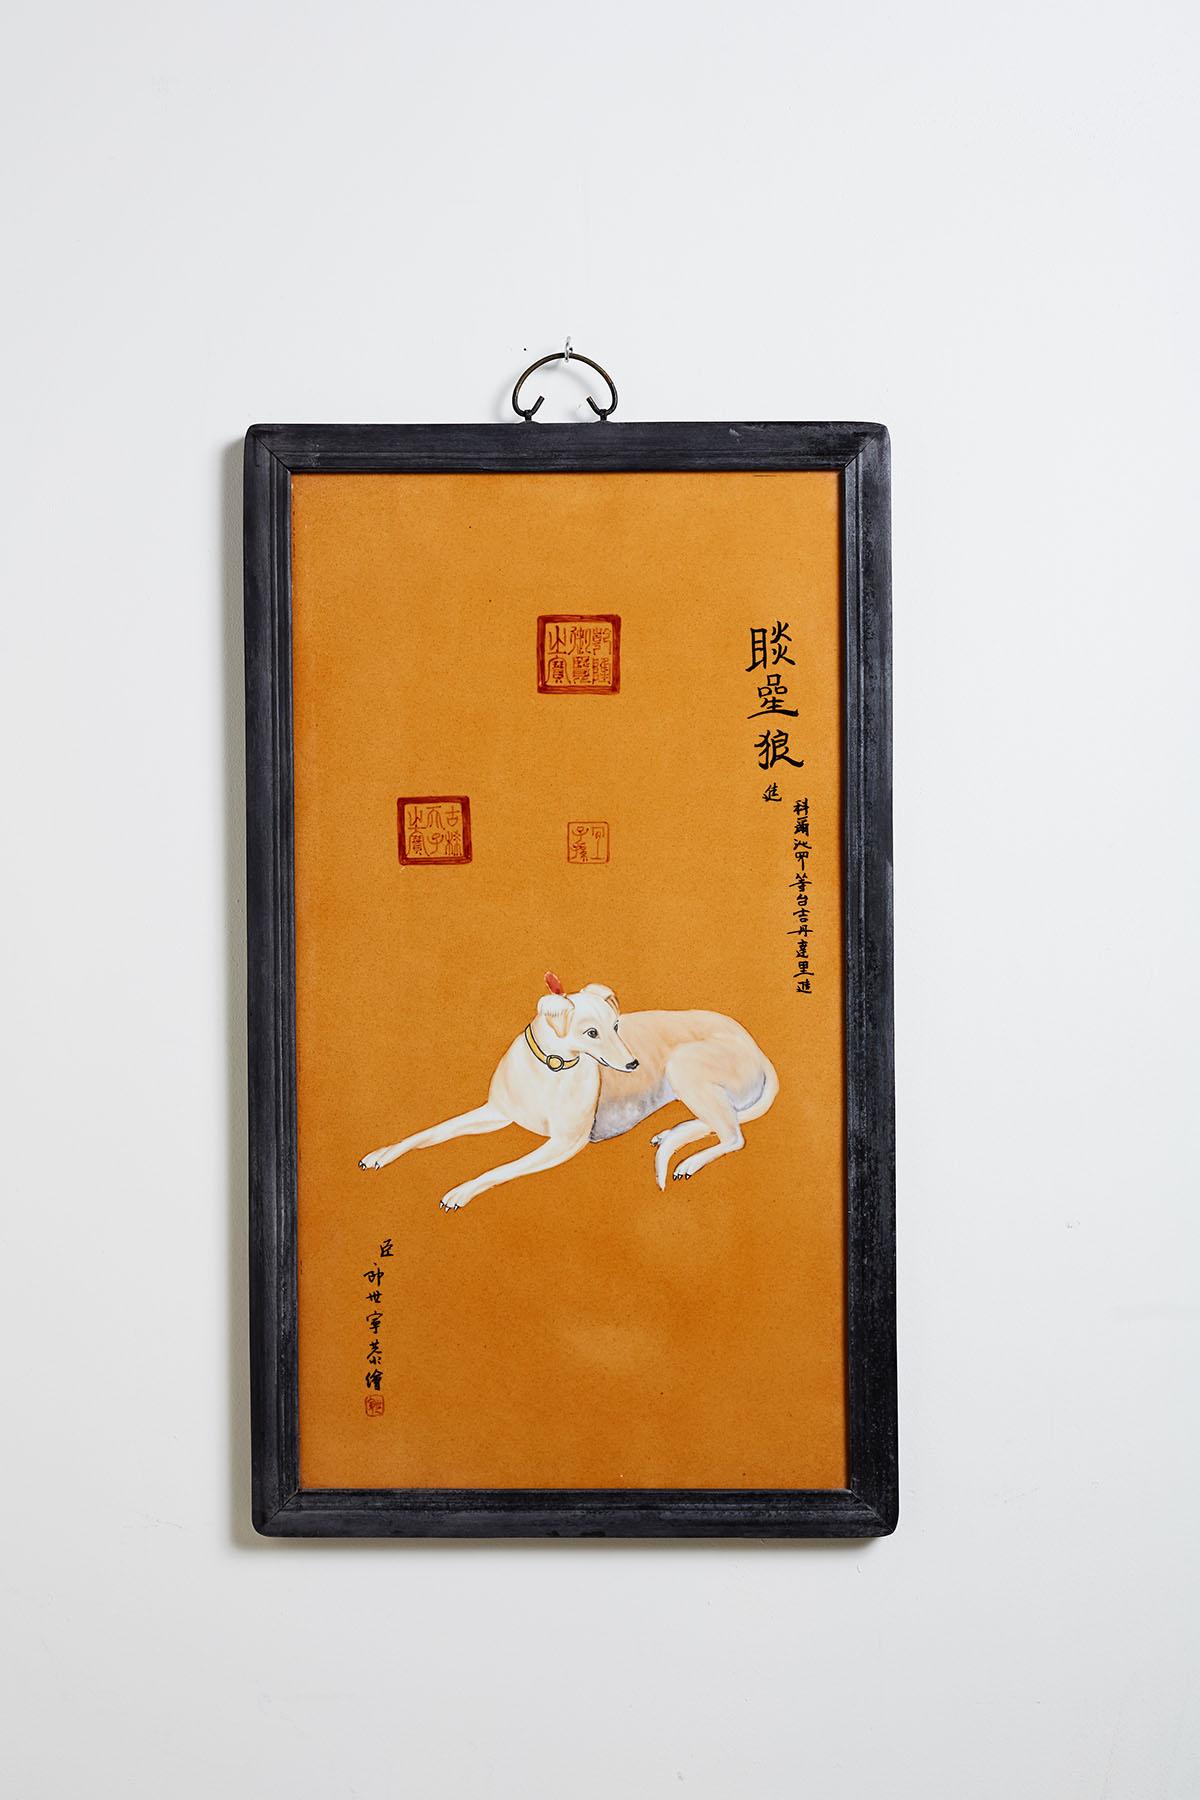 睒星狼
進
科爾沁四等台吉丹達里進
乾隆御覽之寶
古稀天子之寶
子孫
臣郎世寧恭繪